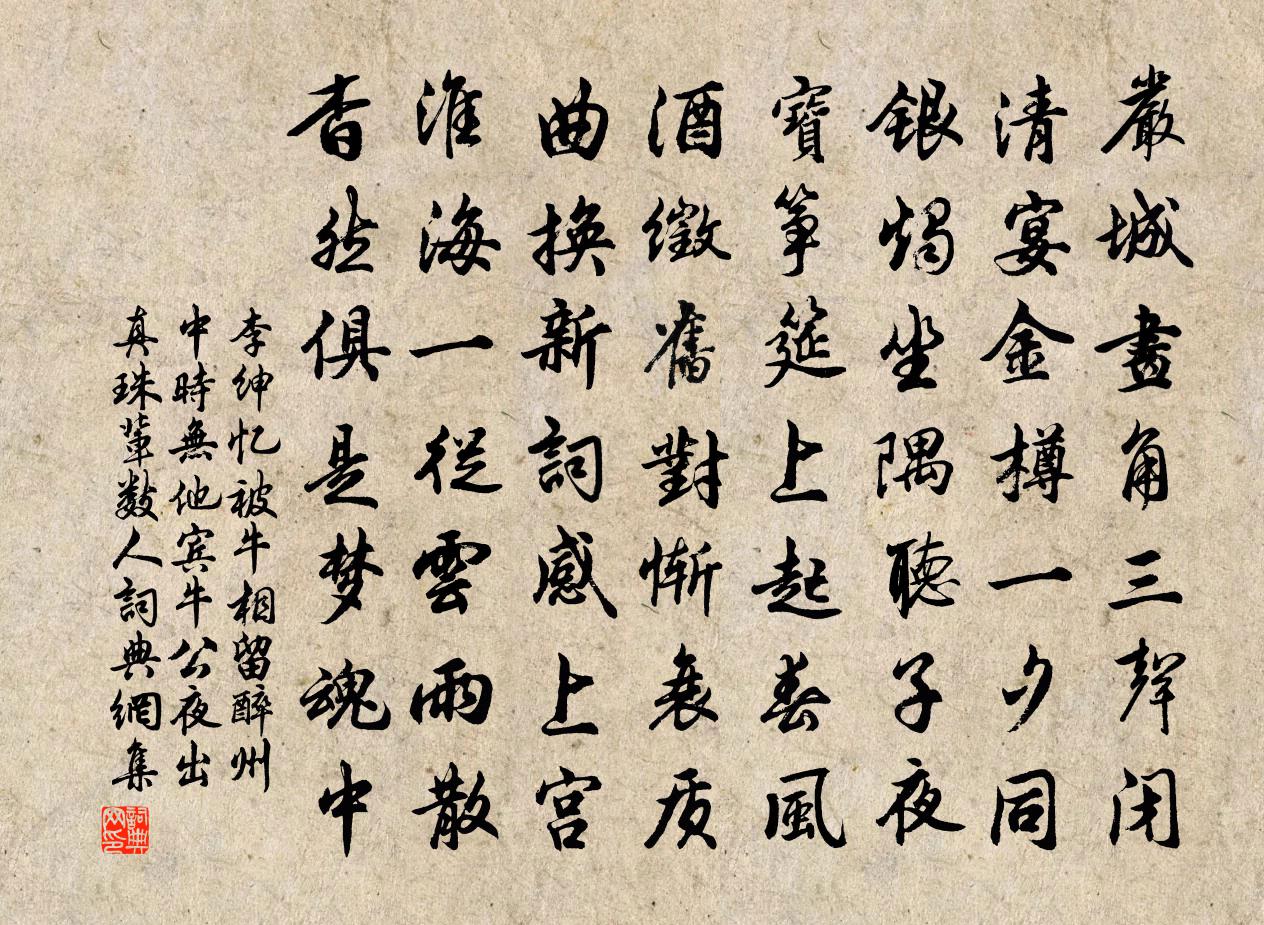 嚴城畫角三聲闭
清宴金樽一夕同
銀燭坐隅聽子夜
寶筝筵上起春風
酒徵舊對慚衰质
曲換新詞感上宫
淮海一從雲雨散
杳然俱是梦魂中
李紳忆被牛相留醉州
中時無他宾牛公夜出
真珠輩數人詞典網集
詞典
网印